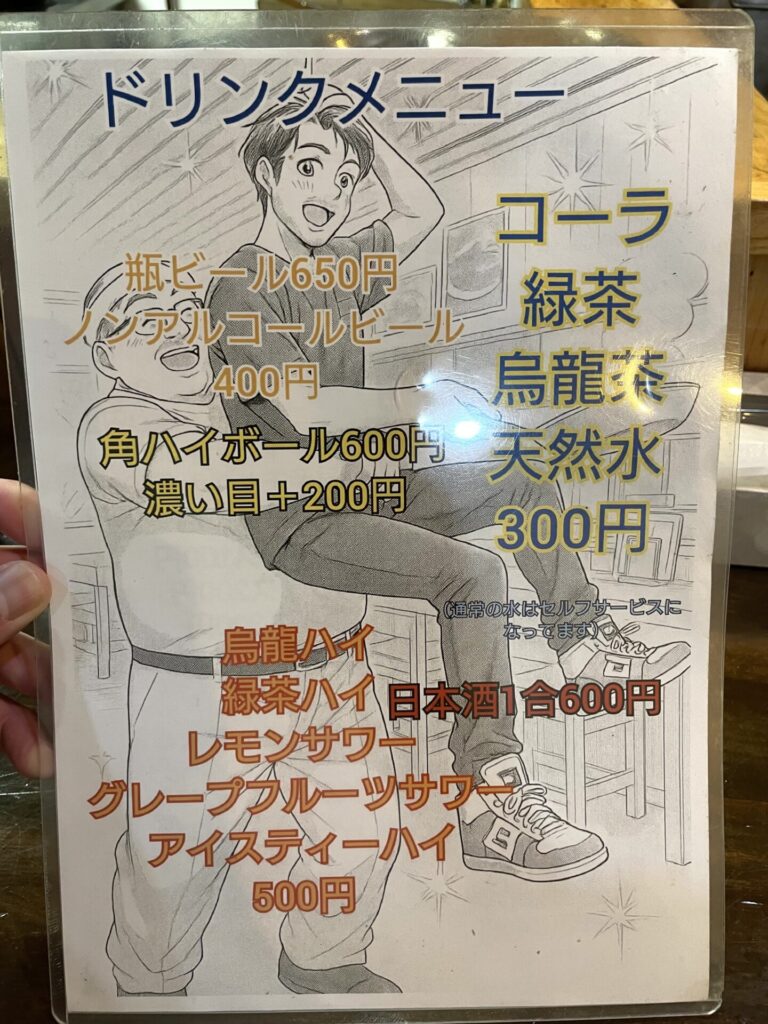 ドリンクメニュー
瓶ビール650円
ノンアルコールビール
400円
角ハイボール600円
濃い目＋200円
コーラ
緑茶
烏龍茶
天然水
300円
(通常の水はセルフサービスに
なってます)
烏龍ハイ
緑茶ハイ
レモンサワー
グレープフルーツサワー
アイスティーハイ
500円
日本酒1合600円